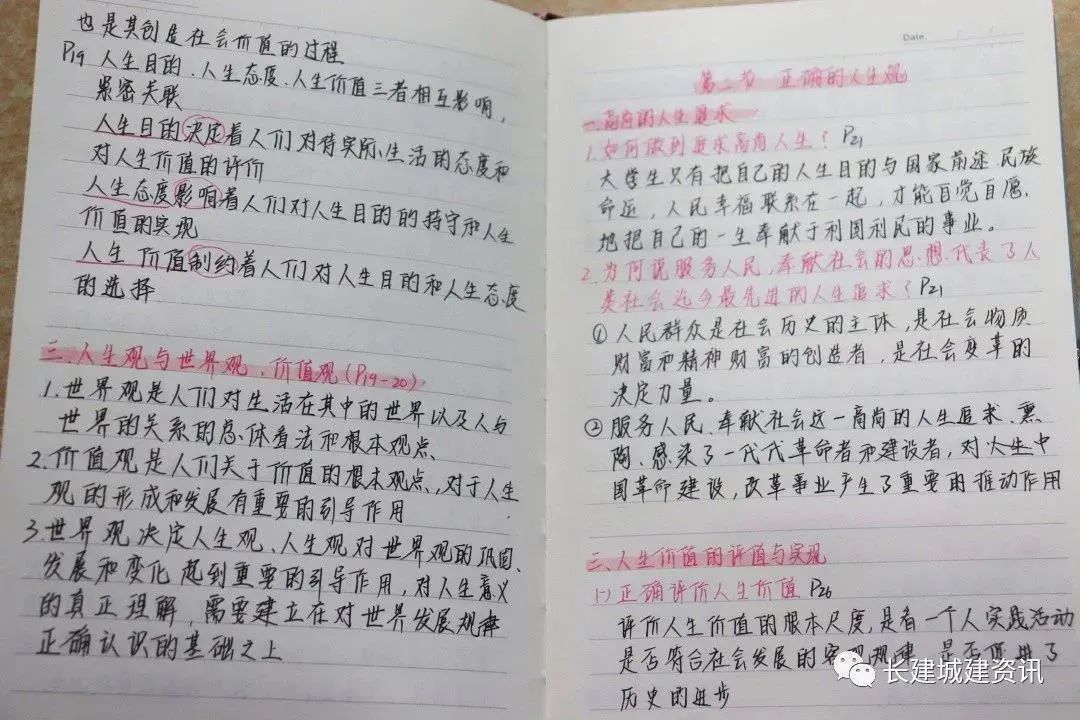 也是其创造社会价值的过程
P19 人生目的、人生态度、人生价值三者相互影响,
紧密关联
人生目的决定着人们对待实际生活的态度和
对人生价值的评价
人生态度影响着人们对人生目的的持守和人生
价值的实现
人生价值制约着人们对人生目的和人生态度
的选择
三、人生观与世界观、价值观(P19-20)
1.世界观是人们对生活在其中的世界以及人与
世界的关系的总体看法和根本观点
2.价值观是人们关于价值的根本观点,对于人生
观的形成和发展有重要的引导作用
3.世界观决定人生观、人生观对世界观的巩固、
发展和变化起到重要的引导作用,对人生意义
的真正理解,需要建立在对世界发展规律
正确认识的基础之上
Date
第二节 正确的人生观
一.高尚的人生追求
1.如何做到追求高尚人生? P21
大学生只有把自己的人生目的与国家前途、民族
命运,人民幸福联系在一起,才能自觉自愿
地把自己的一生奉献于利国利民的事业。
2.为何说服务人民,奉献社会的思想代表了人
类社会迄今最先进的人生追求? P21
①人民群众是社会历史的主体,是社会物质
财富和精神财富的创造者,是社会变革的
决定力量。
②服务人民、奉献社会这一高尚的人生追求、熏
陶、感染了一代代革命者和建设者,对 中
国革命建设,改革事业产生了重要的推动作用
三、人生价值的评值与实现
(一)正确评价人生价值 P26
评价人生价值的根本尺度,是看一个人实践活动
是否符合社会发展的客观规律 是否促进了
历史的进步
长建城建资讯